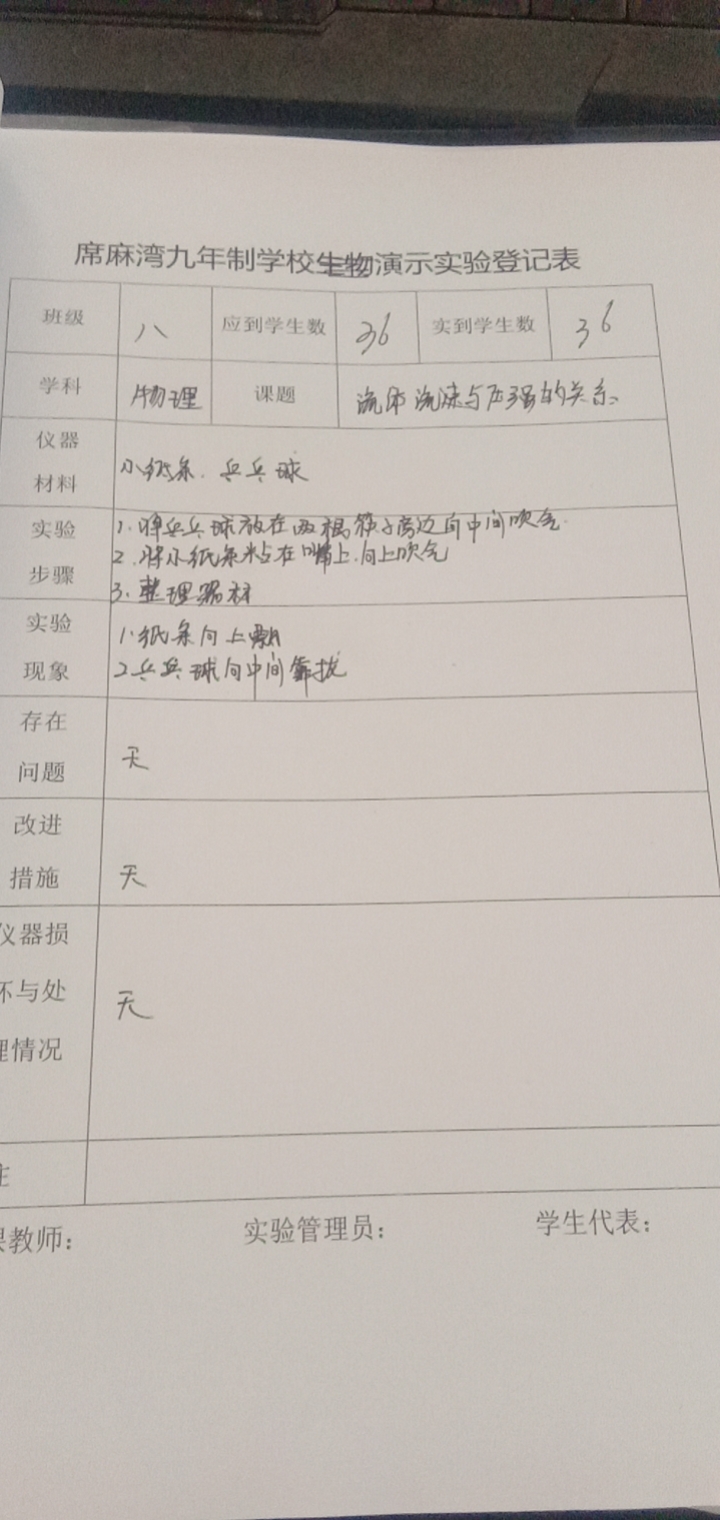 席麻湾九年制学校生物演示实验登记表
班级 八 应到学生数 36 实到学生数 36
学科 物理 课题 流体流速与压强的关系
仪器
材料
小纸条、乒乓球
实验
步骤
1.将乒乓球放在两根筷子旁边向中间吹气
2.将小纸条粘在嘴上.向上吹气
3.整理器材
实验
现象
1.纸条向上飘
2.乒乓球向中间靠拢
存在
问题
无
改进
措施
无
仪器损
坏与处
理情况
无
注
课教师:
实验管理员:
学生代表: